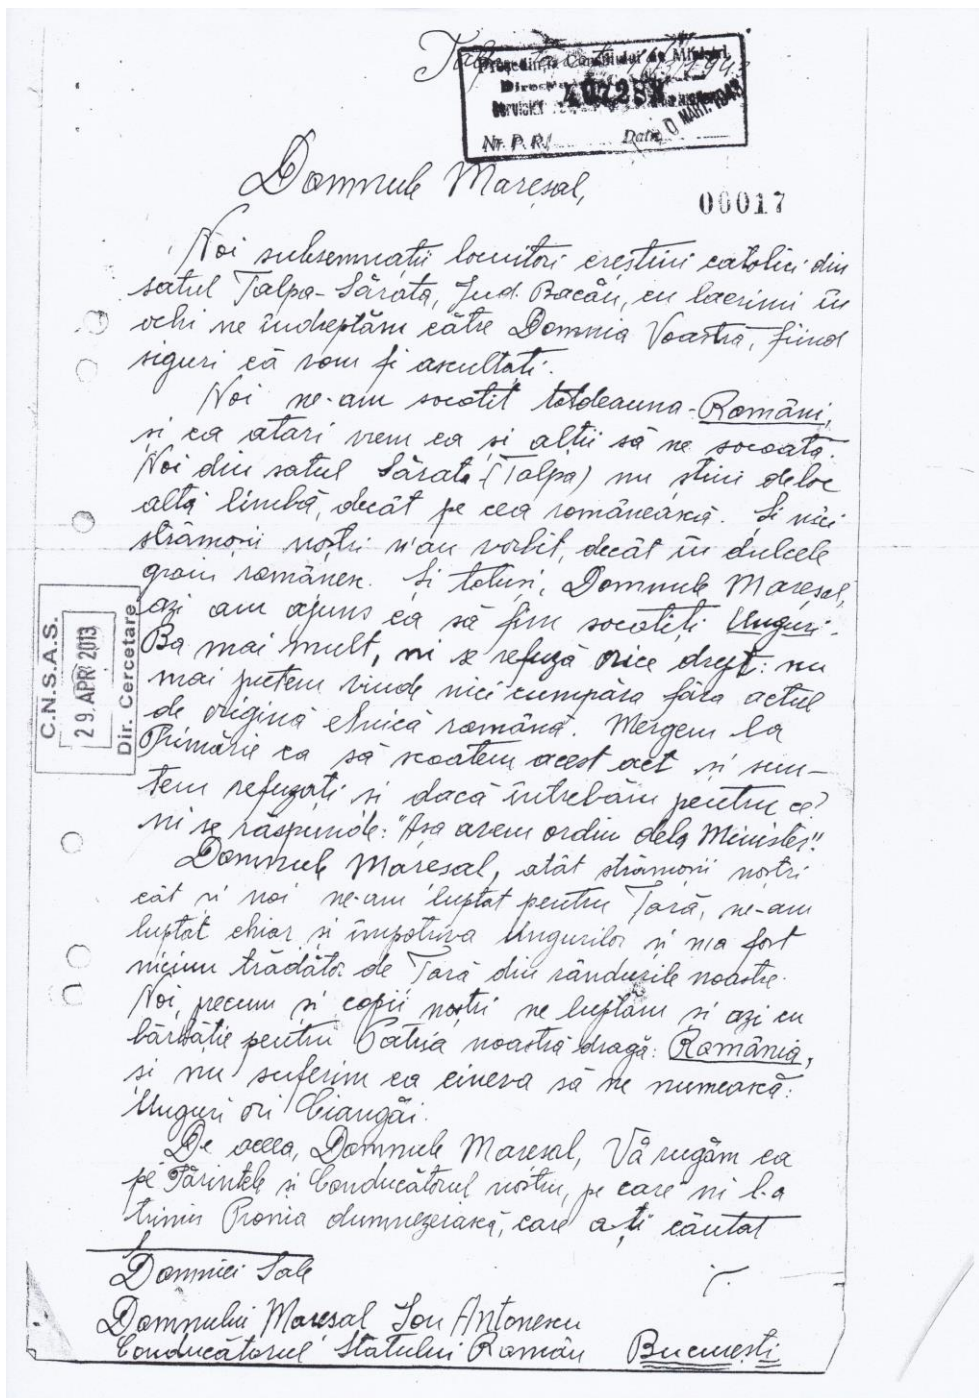 Președinția Consiliului de Miniștri
40728
Nr. P. R. Data MART. 1943
Domnule Mareșal,
00017
Noi subsemnații locuitori creștini catolici din
satul Talpa-Sărata, Jud. Bacău, cu lacrimi în
ochi ne îndreptăm către Domnia Voastră, fiind
siguri că vom fi ascultați.
Noi ne-am socotit totdeauna-Români,
și ca atari vrem ca și alții să ne socoată.
Noi din satul Sărata (Talpa) nu știm deloc
altă limbă, decât pe cea românească. Și nici
strămoșii noștri n'au vorbit, decât în dulcele
graiu românesc. Și totuși, Domnule Mareșal,
azi am ajuns ca să fim socotiți Unguri.
Ba mai mult, ni se refuză orice drept: nu
mai putem vinde nici cumpăra fără actul
de origină etnică română. Mergem la
Primărie ca să scoatem acest act și sun-
tem refuzați și dacă întrebăm pentru ce?
ni se răspunde: "Așa avem ordin dela Minister".
Domnule Mareșal, atât strămoșii noștri
cât și noi ne-am luptat pentru Țară, ne-am
luptat chiar și împotriva Ungurilor și n-a fost
niciun trădător de Țară din rândurile noastre.
Noi, precum și copii noștri ne luptăm și azi cu
bărbăție pentru Patria noastră dragă: România,
și nu suferim ca cineva să ne numească:
Unguri ori Ciangăi.
De aceea, Domnule Mareșal, Vă rugăm ca
pe Părintele și Conducătorul nostru, pe care ni l-a
trimis Pronia dumnezeiască, care a-ți căutat
Domniei Sale
Domnului Mareșal Ion Antonescu
Conducătorul Statului Român București
C.N.S.A.S.
29. APR. 2013
Dir. Cercetare